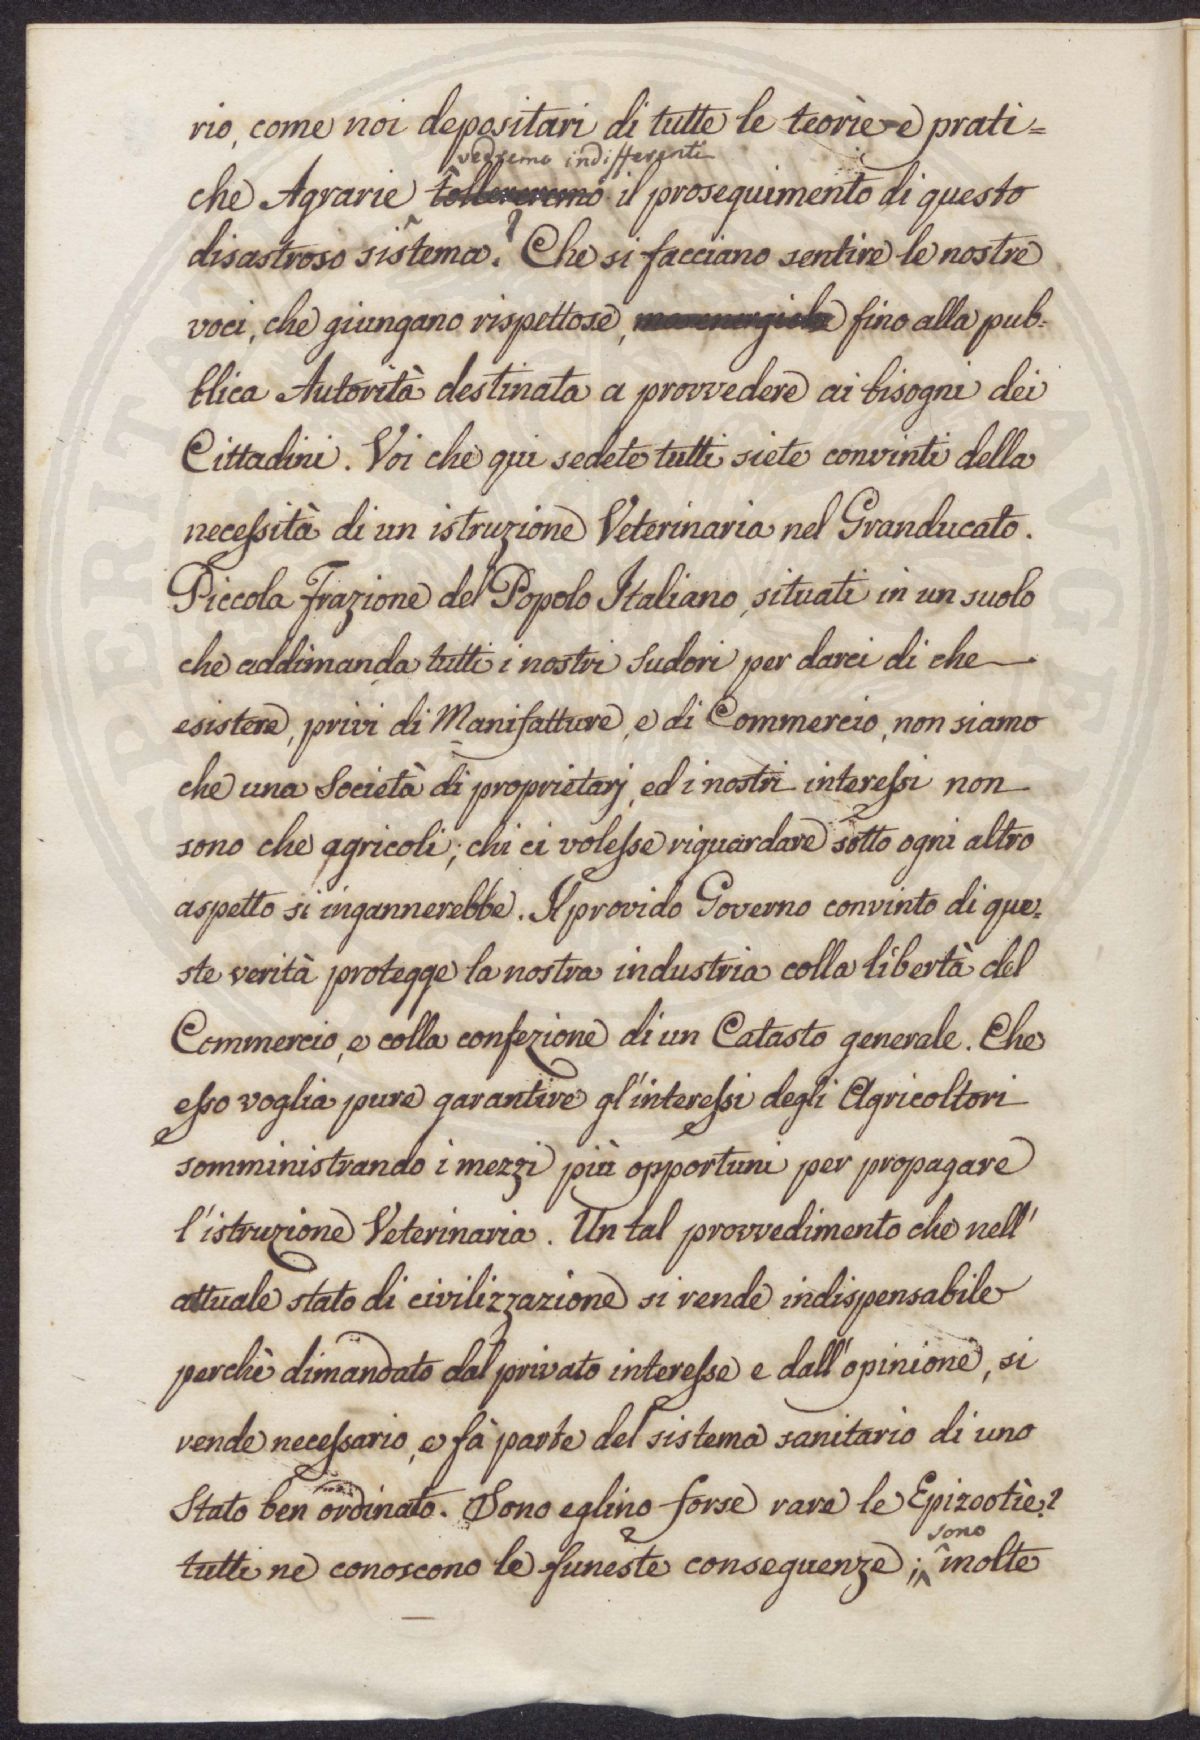 rio, come noi depositari di tutte le teorìe e prati=
vedremo indifferenti
che Agrarie tollereremo il proseguimento di questo
disastroso sistema? Che si facciano sentire le nostre
voci, che giungano rispettose, fino alla pub=
blica Autorità destinata a provvedere ai bisogni dei
Cittadini. Voi che qui sedete tutti siete convinti della
necessità di un istruzione Veterinaria nel Granducato.
Piccola Frazione del Popolo Italiano, situati in un suolo
che addimanda tutti i nostri sudori per darci di che
esistere, privi di Manifatture, e di Commercio, non siamo
che una Società di proprietarj, ed i nostri interessi non
sono che agricoli; chi ci volesse riguardare sotto ogni altro
aspetto si ingannerebbe. Il provido Governo convinto di que=
ste verità protegge la nostra industria colla libertà del
Commercio, e colla confezione di un Catasto generale. Che
esso voglia pure garantire gl'interessi degli Agricoltori
somministrando i mezzi più opportuni per propagare
l'istruzione Veterinaria. Un tal provvedimento che nell'
attuale stato di civilizzazione si rende indispensabile
perchè dimandato dal privato interesse e dall'opinione, si
rende necessario, e fà parte del sistema sanitario di uno
Stato ben ordinato. Sono eglino forse rare le Epizootìe?
sono
tutti ne conoscono le funeste conseguenze; molte